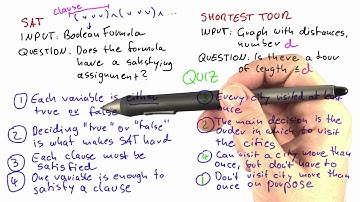 SAT
clause
(v v v) ∧ (v v v) ∧ ...
INPUT: Boolean Formula
QUESTION: Does the formula
have a satisfying
assignment?
1 Each variable is either
true or false
2 Deciding "true" or "false"
is what makes SAT hard
3 Each clause must be
satisfied
4 One variable is enough to
satisfy a clause
SHORTEST TOUR
INPUT: Graph with distances,
number d
QUESTION: Is there a tour
of length ≤ d
QUIZ
3 Every city visited at
once
2 The main decision is the
order in which to visit
the cities
4 Can visit a city more than
once, but don't have to
1 Don't visit city more than
once on purpose